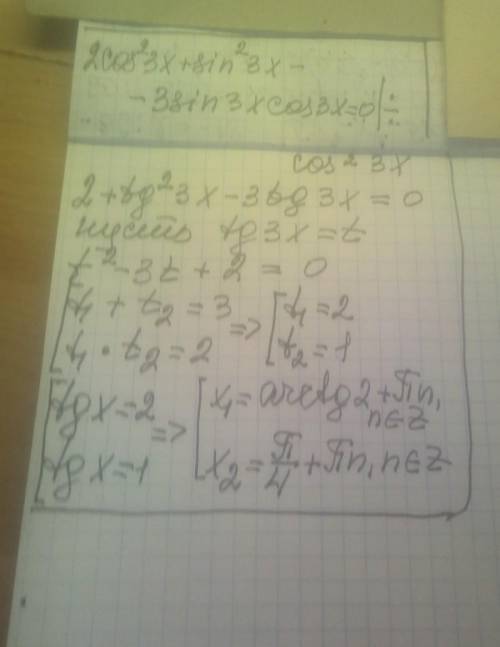 2cos²3x+sin²3x-
-3sin3xcos3x=0|:
cos²3x
2+tg²3x-3tg3x=0
пусть tg3x=t
t²-3t+2=0
t₁+t₂=3 => t₁=2
t₁·t₂=2 t₂=1
tgx=2 => x₁=arctg2+πn,
n∈Z
tgx=1 x₂=π/4+πn, n∈Z